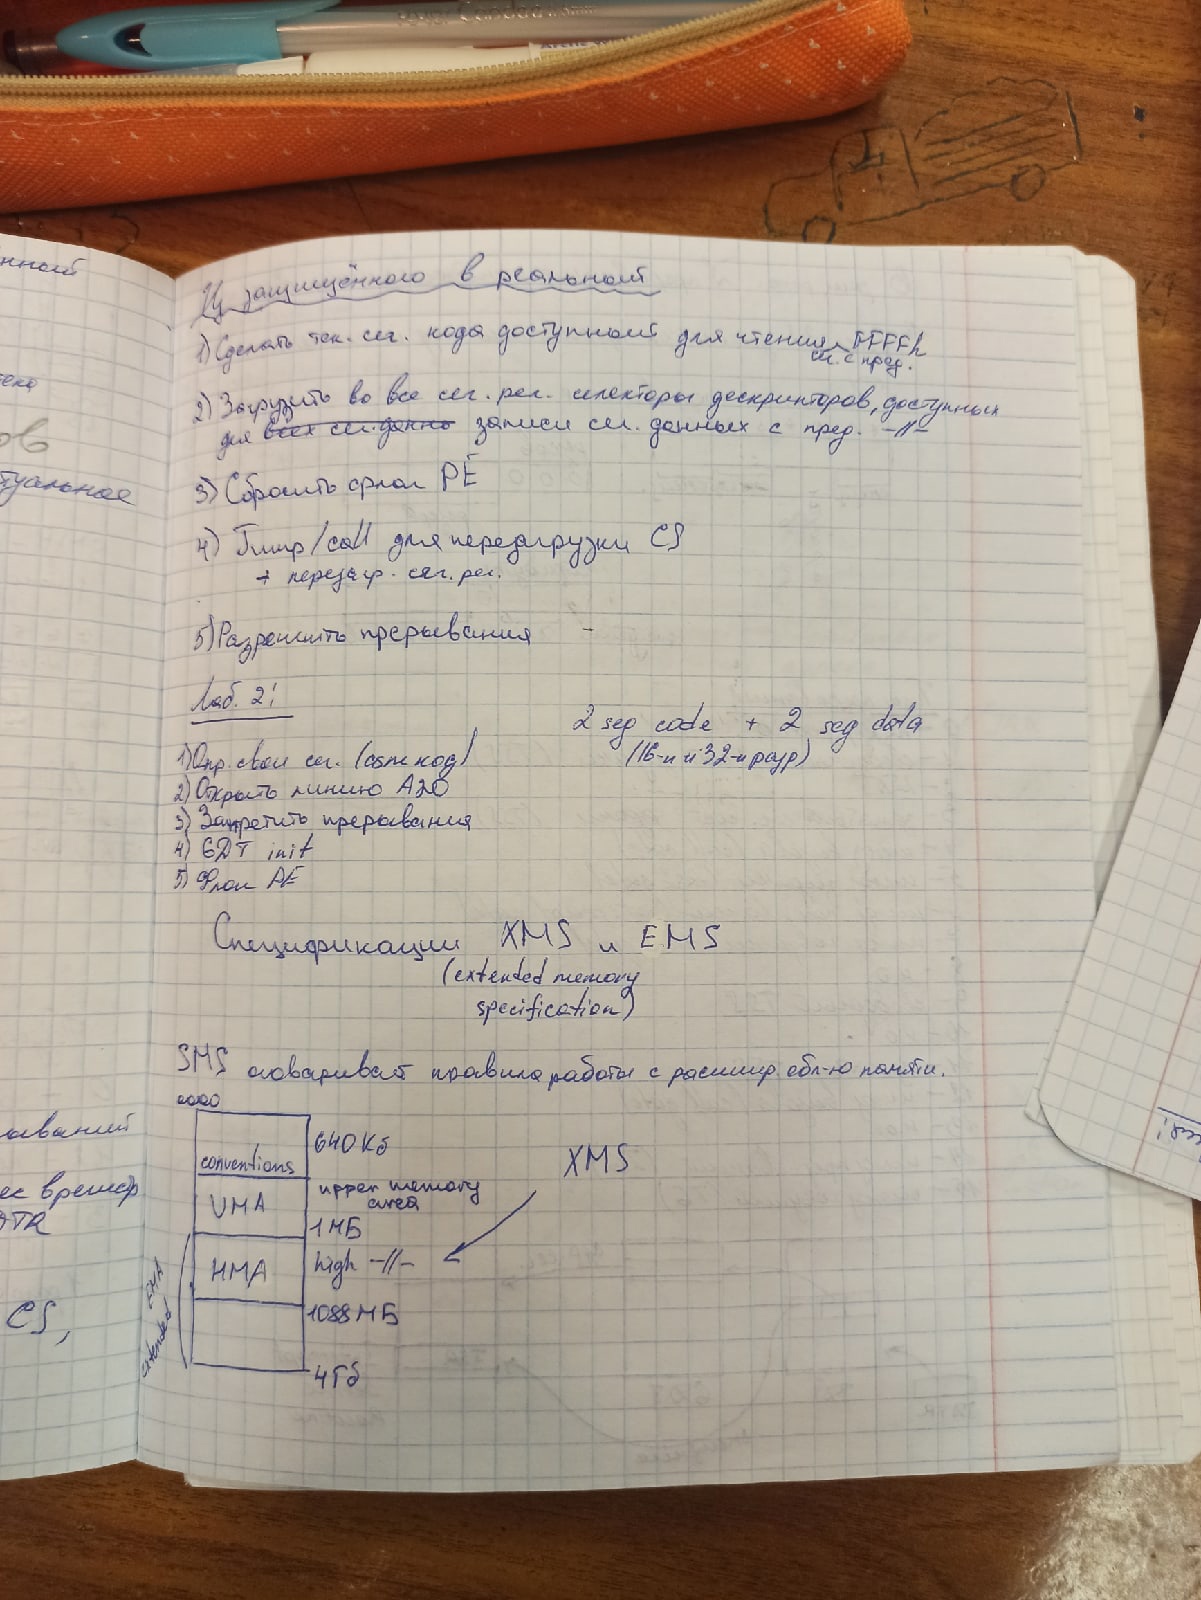 нный
Из защищённого в реальный
1) Сделать тек. сег. кода доступный для чтения, FFFFh
сег. с пред.
2) Загрузить во все сег. рег. селекторы дескрипторов, доступных
для всех сег. данно записи сег. данных с пред. -//-
туальное
3) Сбросить флаг PE
4) Jump/call для перезагрузки CS
+ перезагр. сег. рег.
5) Разрешить прерывания -
Лаб. 2:
2 seg code + 2 seg data
(16-и и 32-и разр)
1) Опр. свои сег. (asm код)
2) Открыть линию A20
3) Запретить прерывания
4) GDT init
5) Флаг PE
Спецификации XMS и EMS
(extended memory
specification)
SMS оговаривает правила работы с расшир. обл-ю памяти.
0000
640Кб
conventions
UMA
upper memory
area
1МБ
HMA
high -//-
XMS
1088МБ
4Гб
EMA
extended
CS,